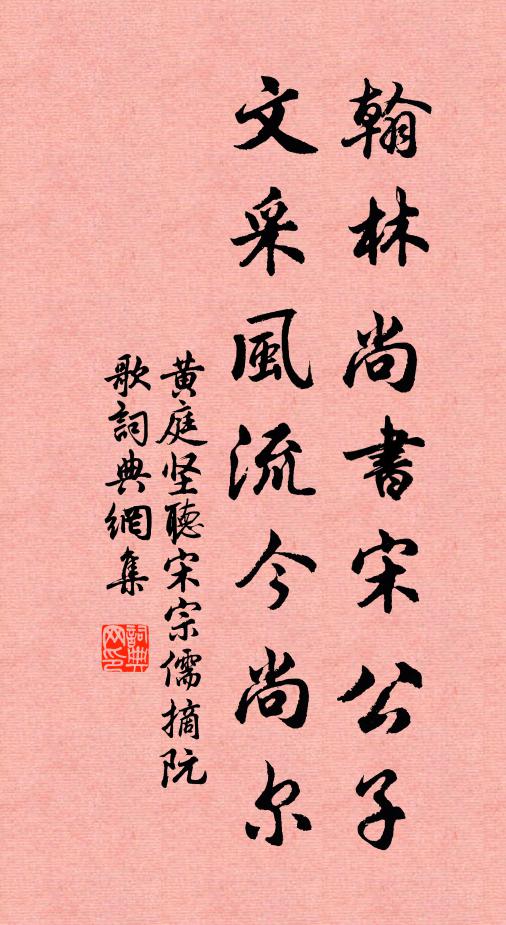 翰林尚書宋公子
文采風流今尚尔
黄庭坚聽宋宗儒摘阮
歌詞典網集
詞典网印